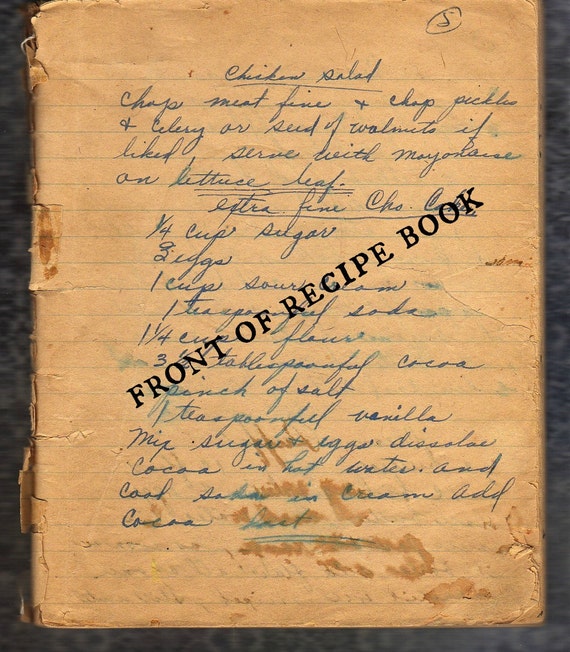 5
Chicken Salad
Chop meat fine & chop pickles
& Celery or seed of walnuts if
liked, serve with mayonaise
on lettuce leaf.
extra fine Cho. Cake
1/4 cup sugar
2 eggs
1 cup sour cream
1 teaspoonful soda
1 1/4 cups flour
3 tablespoonful cocoa
pinch of salt
1 teaspoonful vanilla
Mix sugar & eggs dissolve
cocoa in hot water and
cool soda in cream add
Cocoa last
FRONT OF RECIPE BOOK